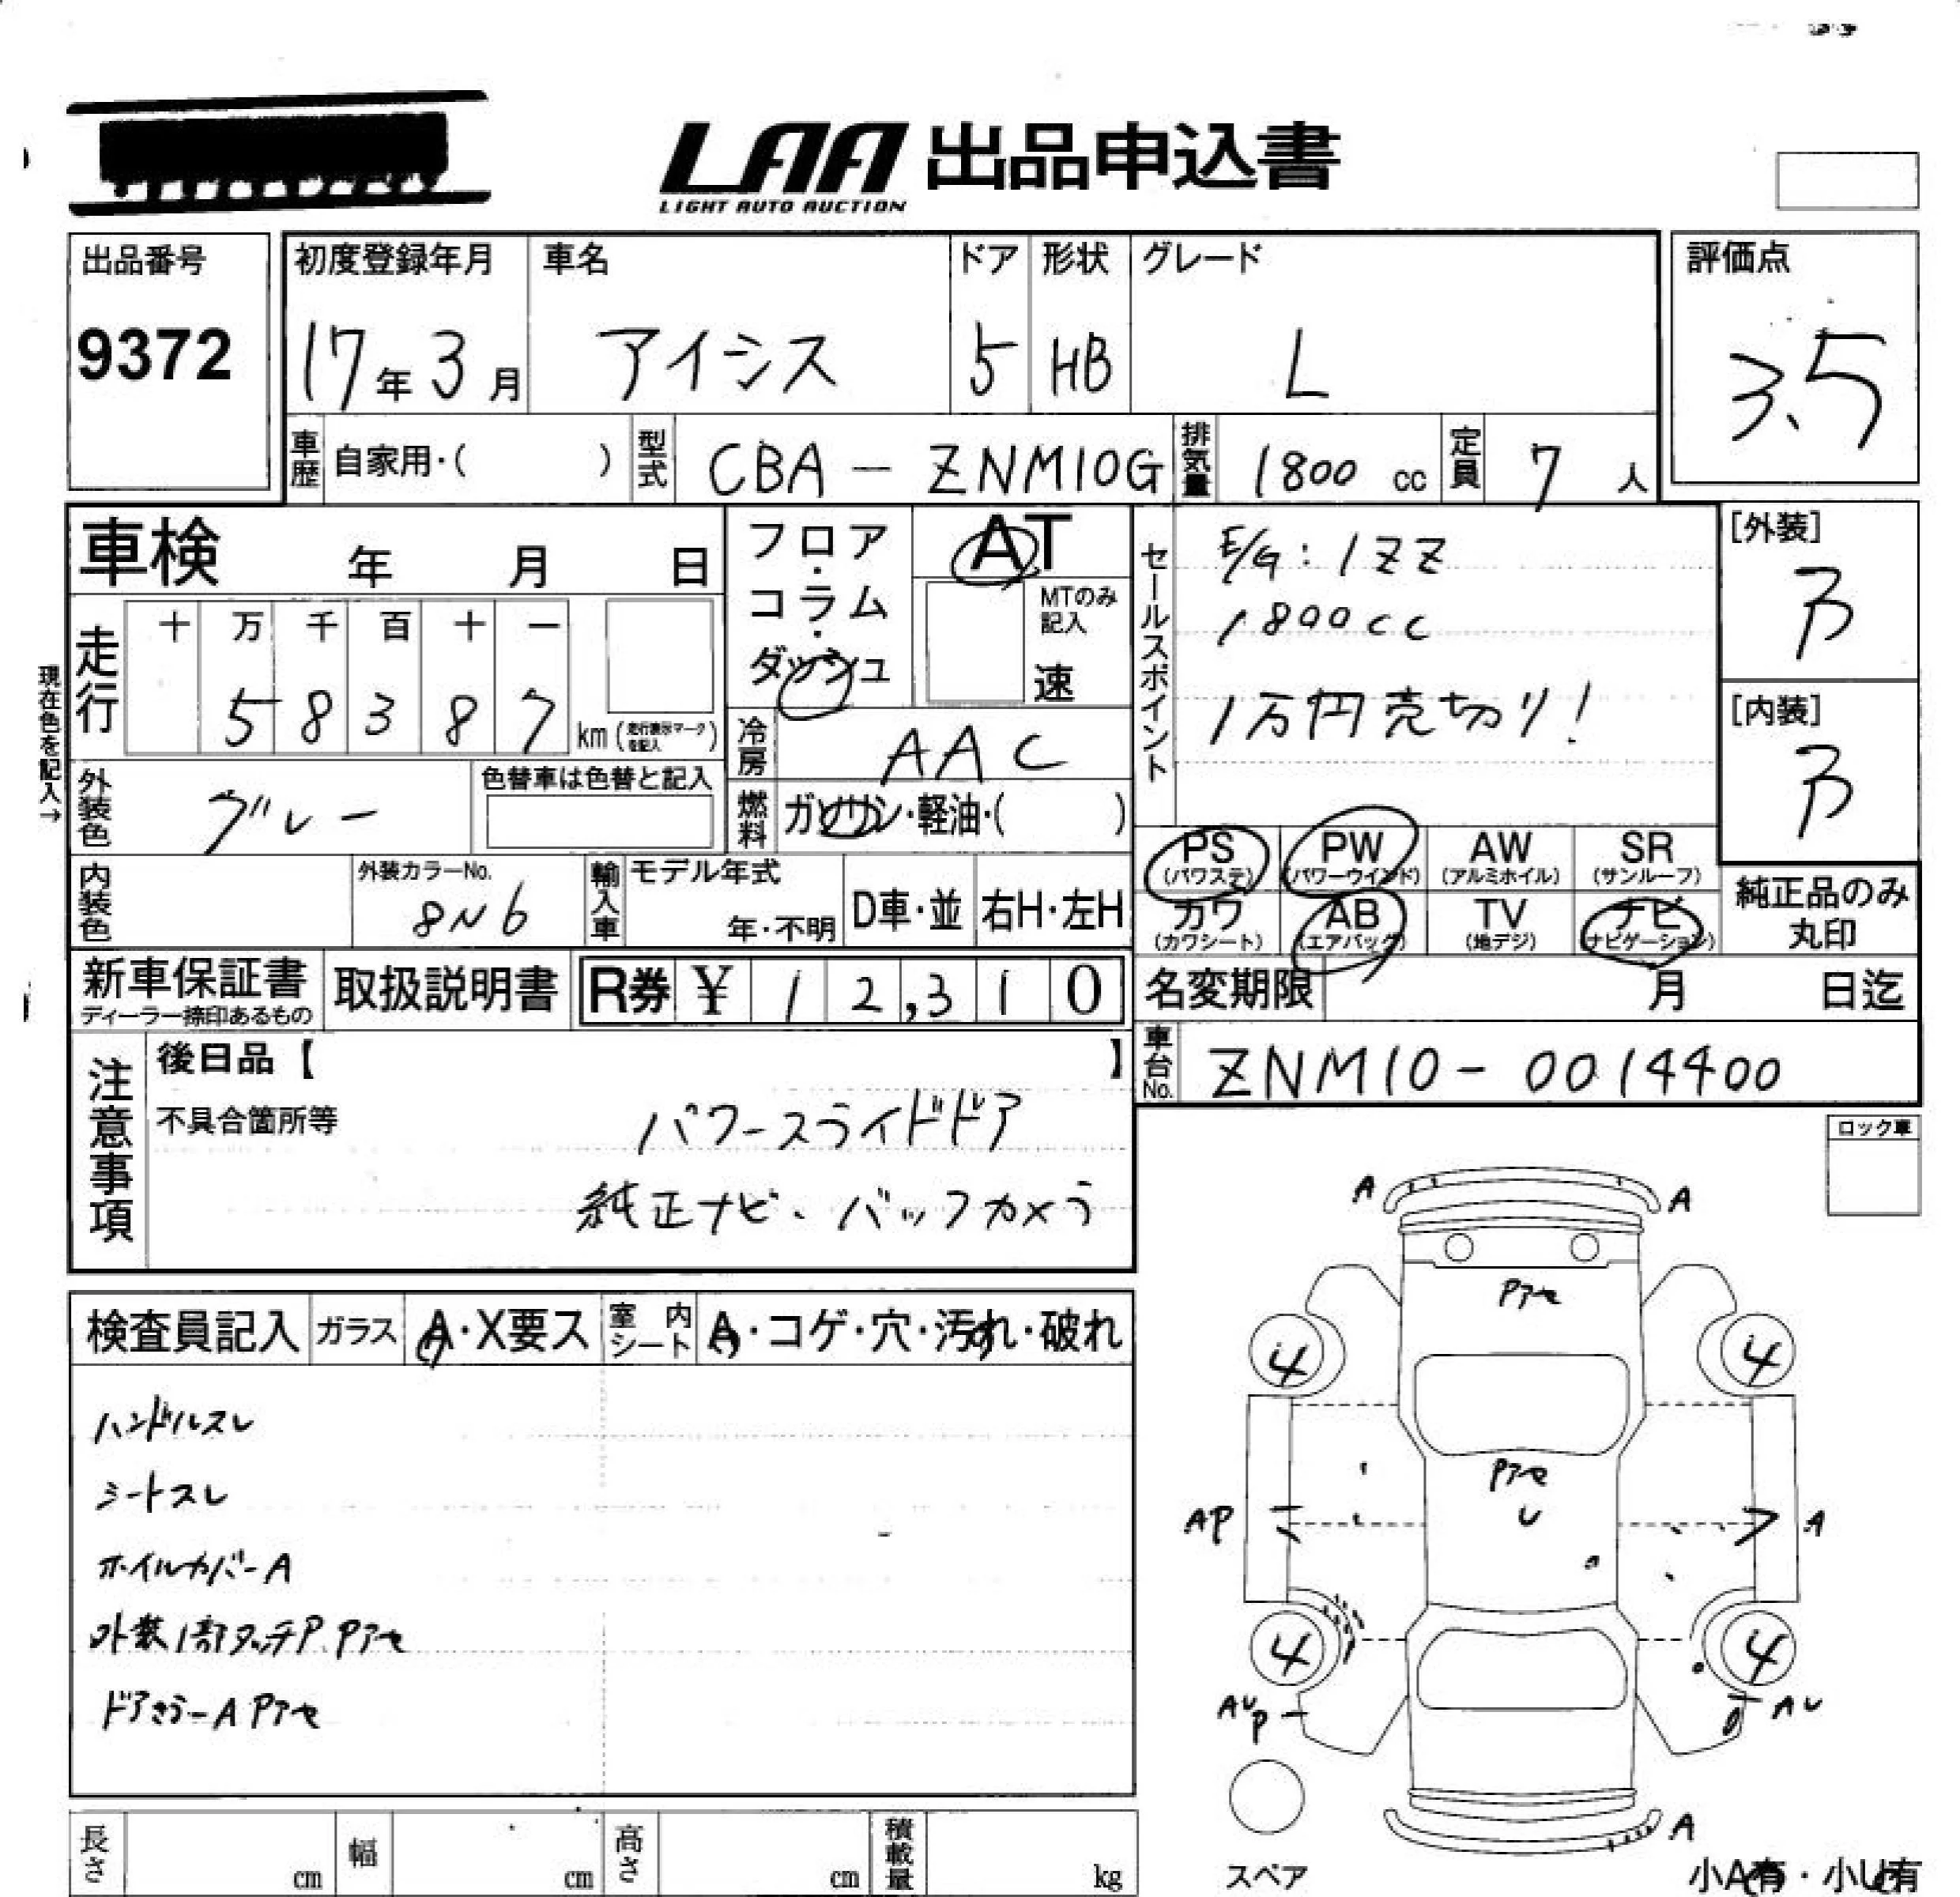 LAA 出品申込書
LIGHT AUTO AUCTION
出品番号
9372
初度登録年月
17年3月
車名
アイシス
ドア
5
形状
HB
グレード
L
評価点
3.5
車歴 自家用・( )
型式 CBA-ZNM10G
排気量 1800 cc
定員 7 人
車検 年 月 日
フロア・コラム・ダッシュ
AT
MTのみ記入
速
セールスポイント
E/G:1ZZ
1800cc
1万円売切り!
[外装]
[内装]
現在色を記入→
走行
十 万 千 百 十 一
5 8 3 8 7 km(走行表示マークを記入)
冷房 AAC
外装色 グレー
色替車は色替と記入
燃料 ガソリン・軽油・( )
PS (パワステ)
PW (パワーウインド)
AW (アルミホイル)
SR (サンルーフ)
カワ (カワシート)
AB (エアバッグ)
TV (地デジ)
ナビ (ナビゲーション)
純正品のみ丸印
内装色
外装カラーNo.
8N6
輸入車
モデル年式
年・不明
D車・並
右H・左H
新車保証書
ディーラー捺印あるもの
取扱説明書
R券 ¥ 1 2,3 1 0
名変期限 月 日迄
車台No. ZNM10-0014400
注意事項
後日品【 】
不具合箇所等
パワースライドドア
純正ナビ、バックカメラ
ロック車
検査員記入
ガラス A・X要ス
室内シート A・コゲ・穴・汚れ・破れ
ハンドルスレ
シートスレ
ホイルカバーA
外装1部タッチP、Pアセ
ドアミラーA Pアセ
A A
Pアセ
4 4
Pアセ
U
AP A
4 4
AUP AU
A
スペア
小A有・小U有
長さ cm
幅 cm
高さ cm
積載量 kg